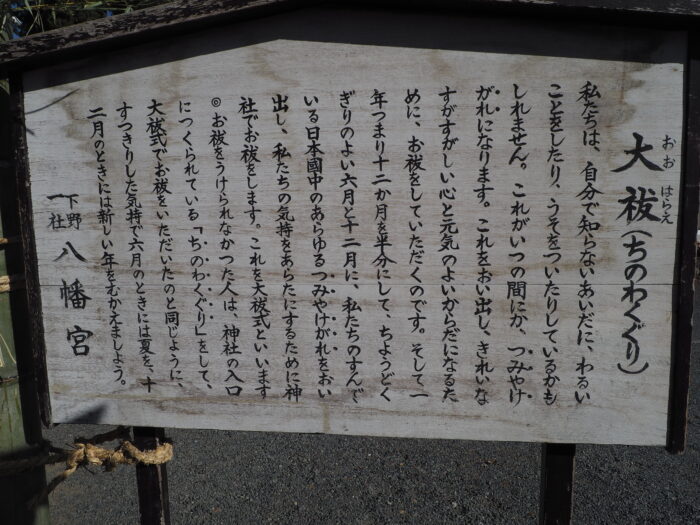 大祓(ちのわくぐり)
おお はらえ
私たちは、自分で知らないあいだに、わるい
ことをしたり、うそをついたりしているかも
しれません。これがいつの間にか、つみやけ
がれになります。これをおい出し、きれいな
すがすがしい心と元気のよいからだになるた
めに、お祓をしていただくのです。そして一
年つまり十二か月を半分にして、ちようどく
ぎりのよい六月と十二月に、私たちのすんで
いる日本國中のあらゆるつみやけがれをおい
出し、私たちの気持をあらたにするために神
社でお祓をします。これを大祓式といいます
◎お祓をうけられなかつた人は、神社の入口
につくられている「ちのわくぐり」をして、
大祓式でお祓をいただいたのと同じように、
すつきりした気持で六月のときには夏を、十
二月のときには新しい年をむかえましよう。
下野一社 八幡宮